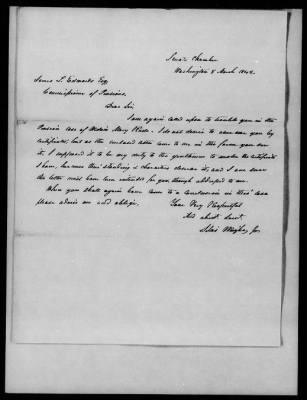 Senate Chamber
Washington 8 March 1842.
James L. Edwards Esq
Commissioner of Pensions,
Dear Sir
I am again called upon to trouble you in the
Pension case of Widow Mary . I do not desire to you by
certificates, but as the enclosed has come to me in this form you see
it, I supposed it to be my duty to the gentlemen to make the certificate
I have, because their standing & characters deserve it, and I am sure
the letter must have been intended for you though addressed to me.
When you shall again have come to a conclusion in this case
please advise me and oblige.
Your Very Respectful
And obedt. Servt.
Silas Wright, Jr.